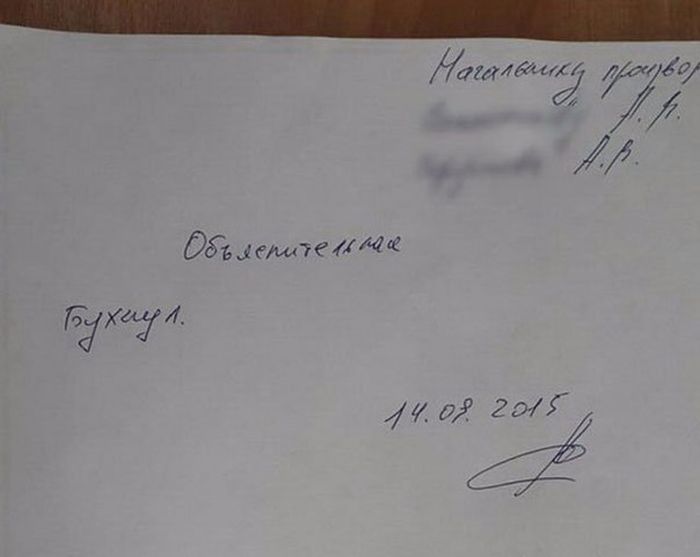 Начальнику произвор
А.В.
А.В.
Объяснительная
Бухнул.
14.09.2015